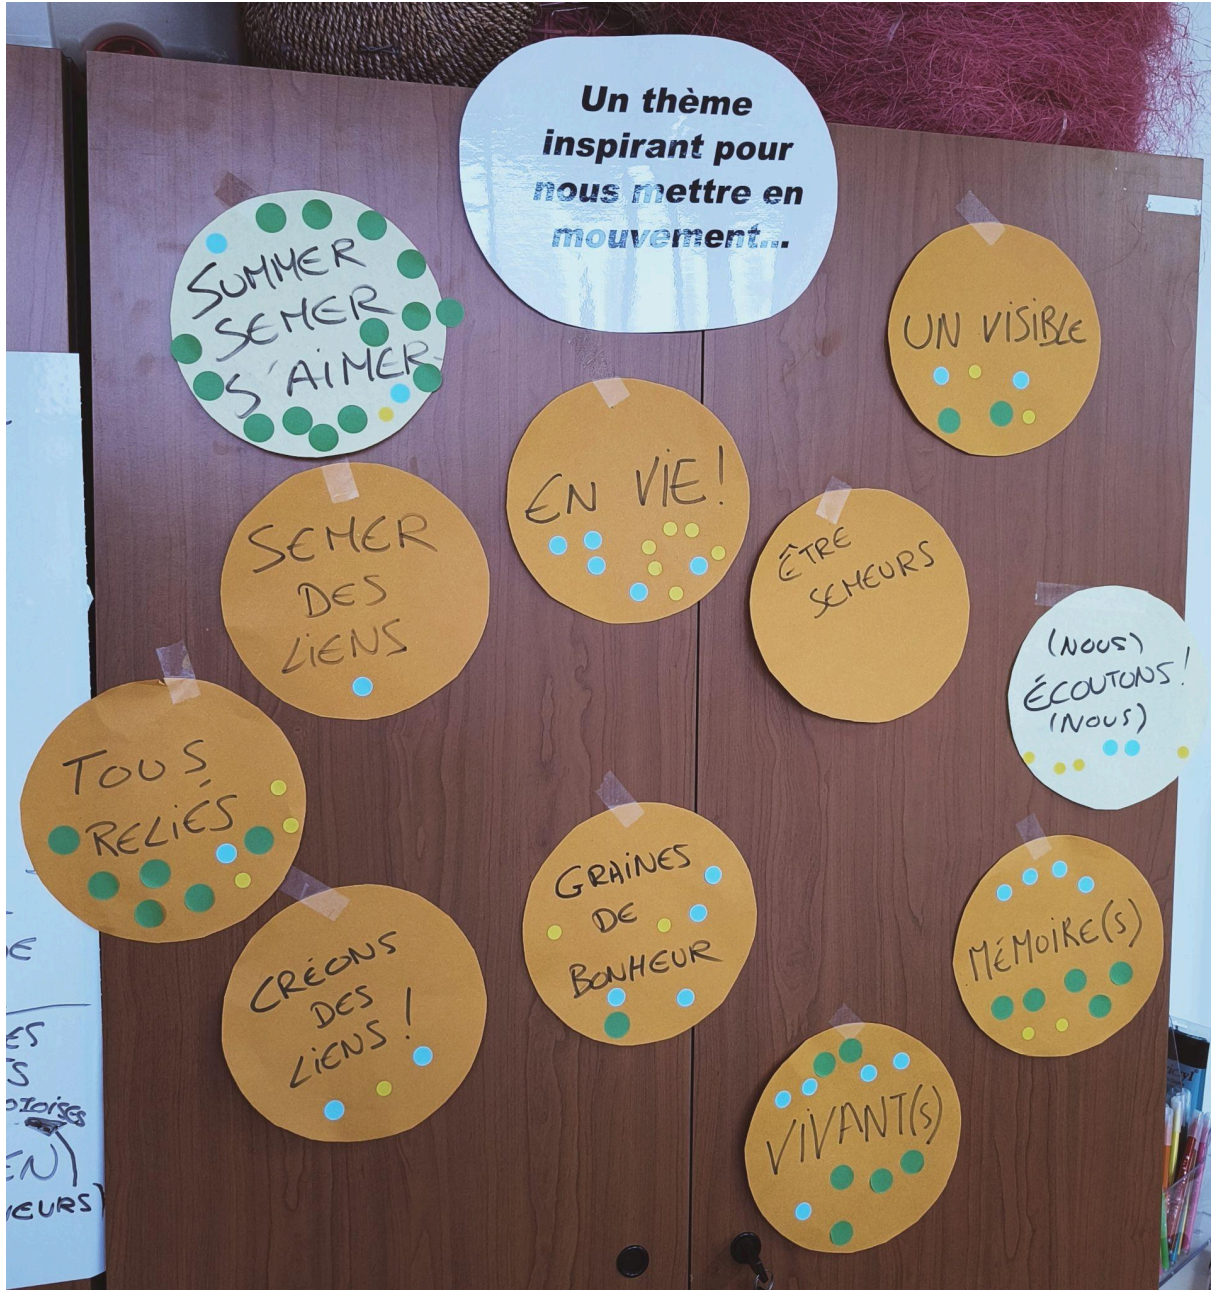 Un thème
inspirant pour
nous mettre en
mouvement...
SUMMER
SEMER
S'AIMER
UN VISIBLE
EN VIE!
SEMER
DES
LIENS
ÊTRE
SEMEURS
(NOUS)
ÉCOUTONS!
(NOUS)
TOUS
RELIÉS
GRAINES
DE
BONHEUR
MÉMOIRE(S)
CRÉONS
DES
LIENS!
VIVANT(S)